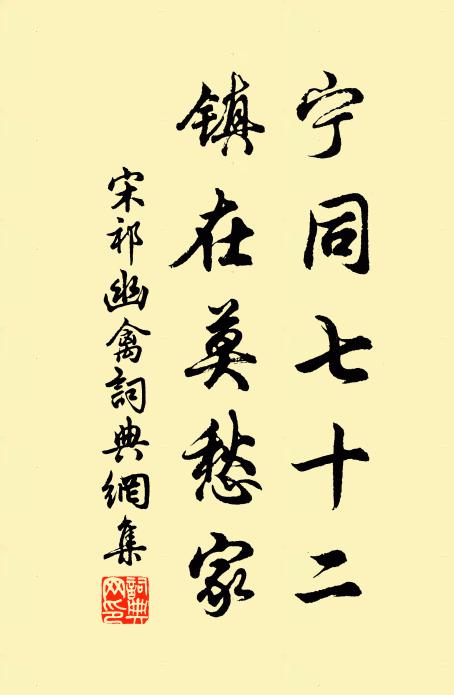 宁同七十二
镇在莫愁家
宋祁幽禽詞典網集
詞典网印